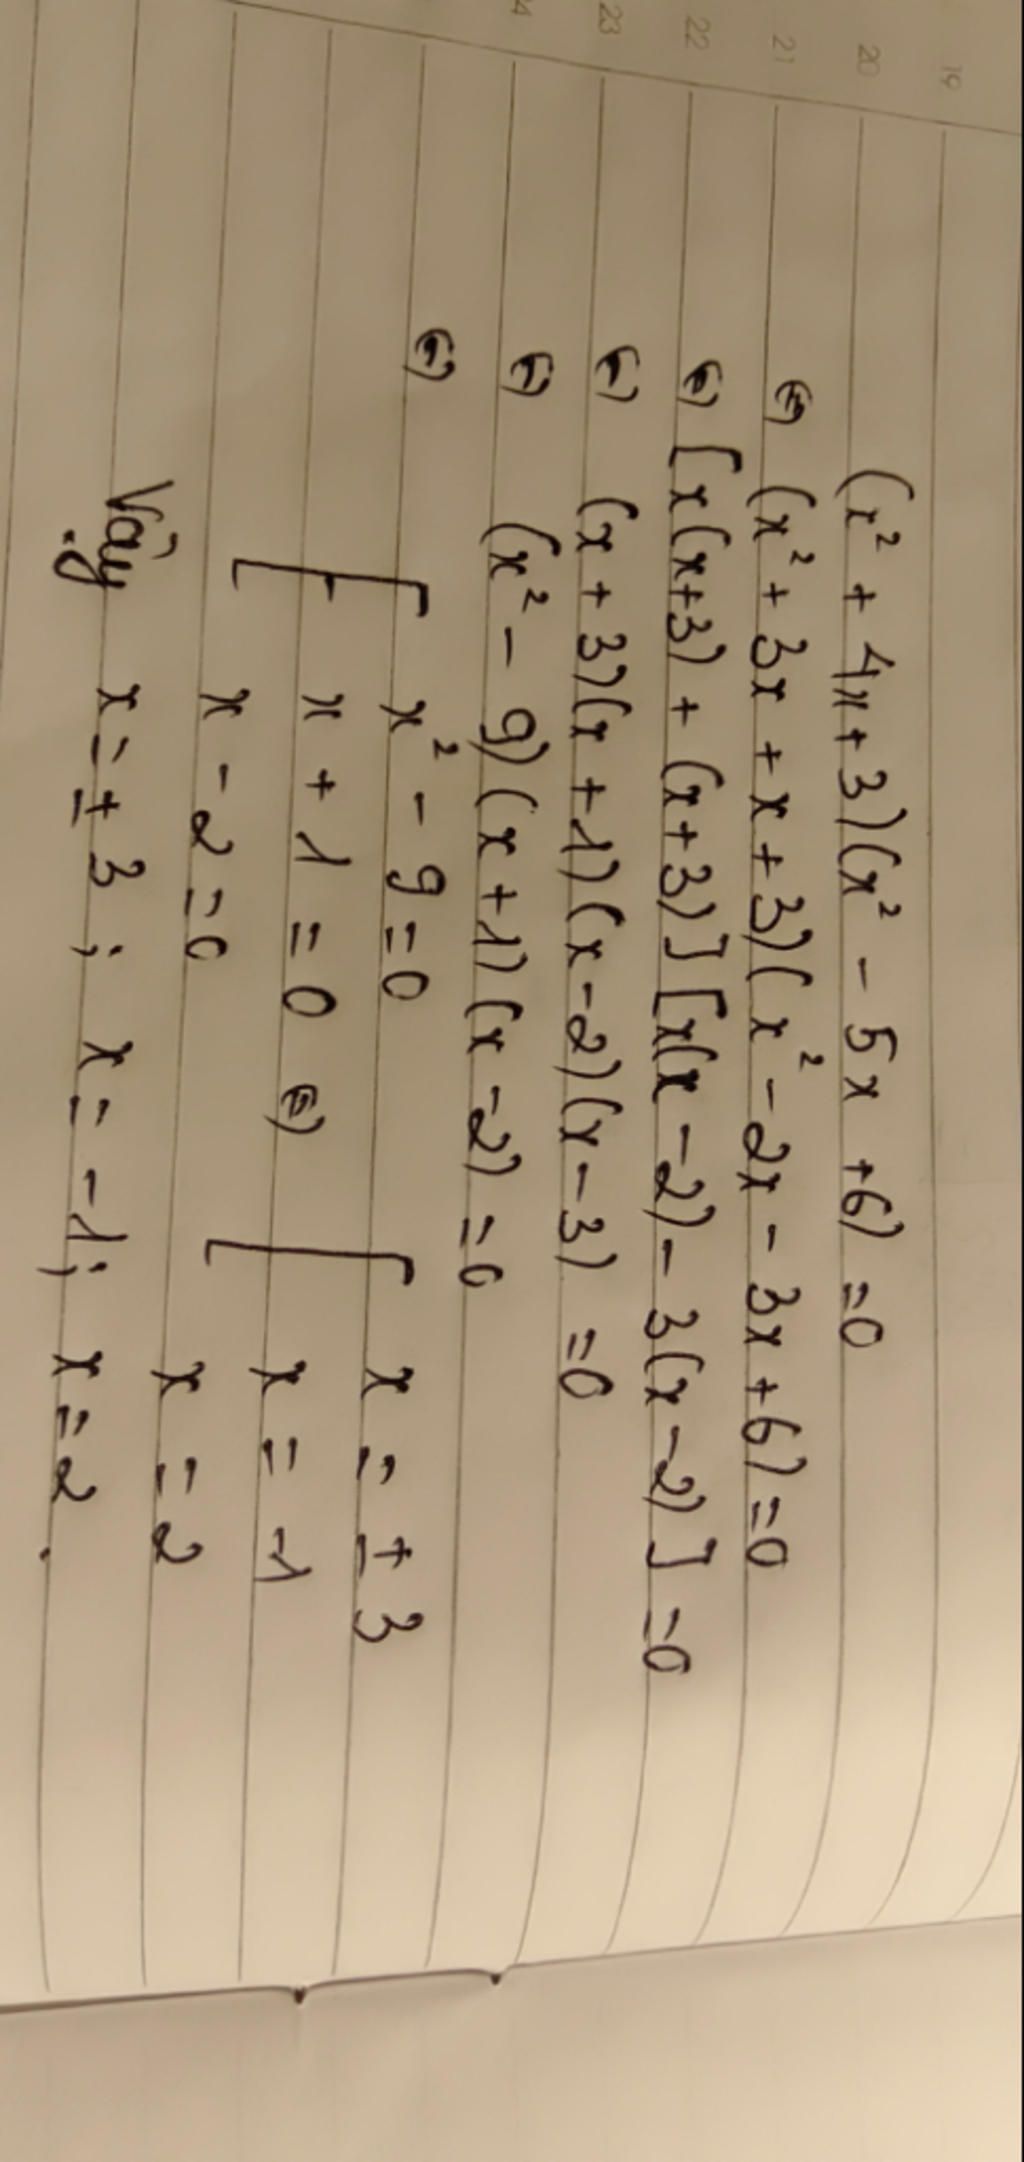 19
20
21
22
23
(x² + 4x + 3)(x² - 5x + 6) = 0
⇔ (x² + 3x + x + 3)(x² - 2x - 3x + 6) = 0
⇔ [x(x+3) + (x+3)][x(x - 2) - 3(x - 2)] = 0
⇔ (x + 3)(x + 1)(x - 2)(x - 3) = 0
⇔ (x² - 9)(x + 1)(x - 2) = 0
⇔ [ x² - 9 = 0 [ x = ± 3
x + 1 = 0 ⇔ x = -1
x - 2 = 0 x = 2
Vậy x = ± 3 ; x = -1 ; x = 2 .